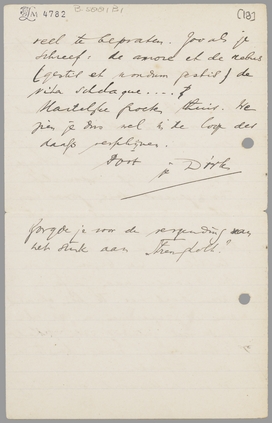 M 4782
(13)
veel te bepraten. Zooals je
schreef: de amore et de rebus
(gestis et nondum gestis) de
vita scholaque....!
Hartelijke groeten thuis. We
zien je dus wel in de loop der
daags verschijnen.
Dirk
Zorg je voor de verzending van
het stuk aan